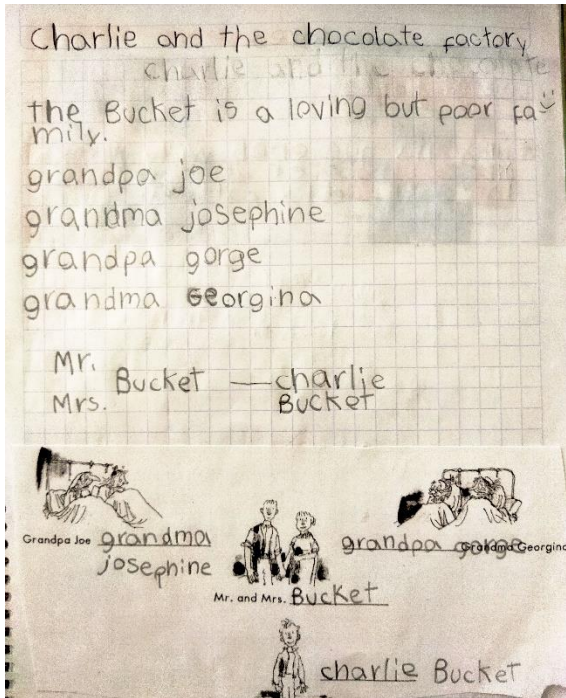 Charlie and the chocolate factory
charlie and the chocolate
the Bucket is a loving but poor fa
mily.
grandpa joe
grandma josephine
grandpa gorge
grandma Georgina
Mr.
Bucket — charlie
Mrs. Bucket
Grandpa Joe grandma
josephine
grandpa gorge Grandma Georgina
Mr. and Mrs. Bucket
charlie Bucket